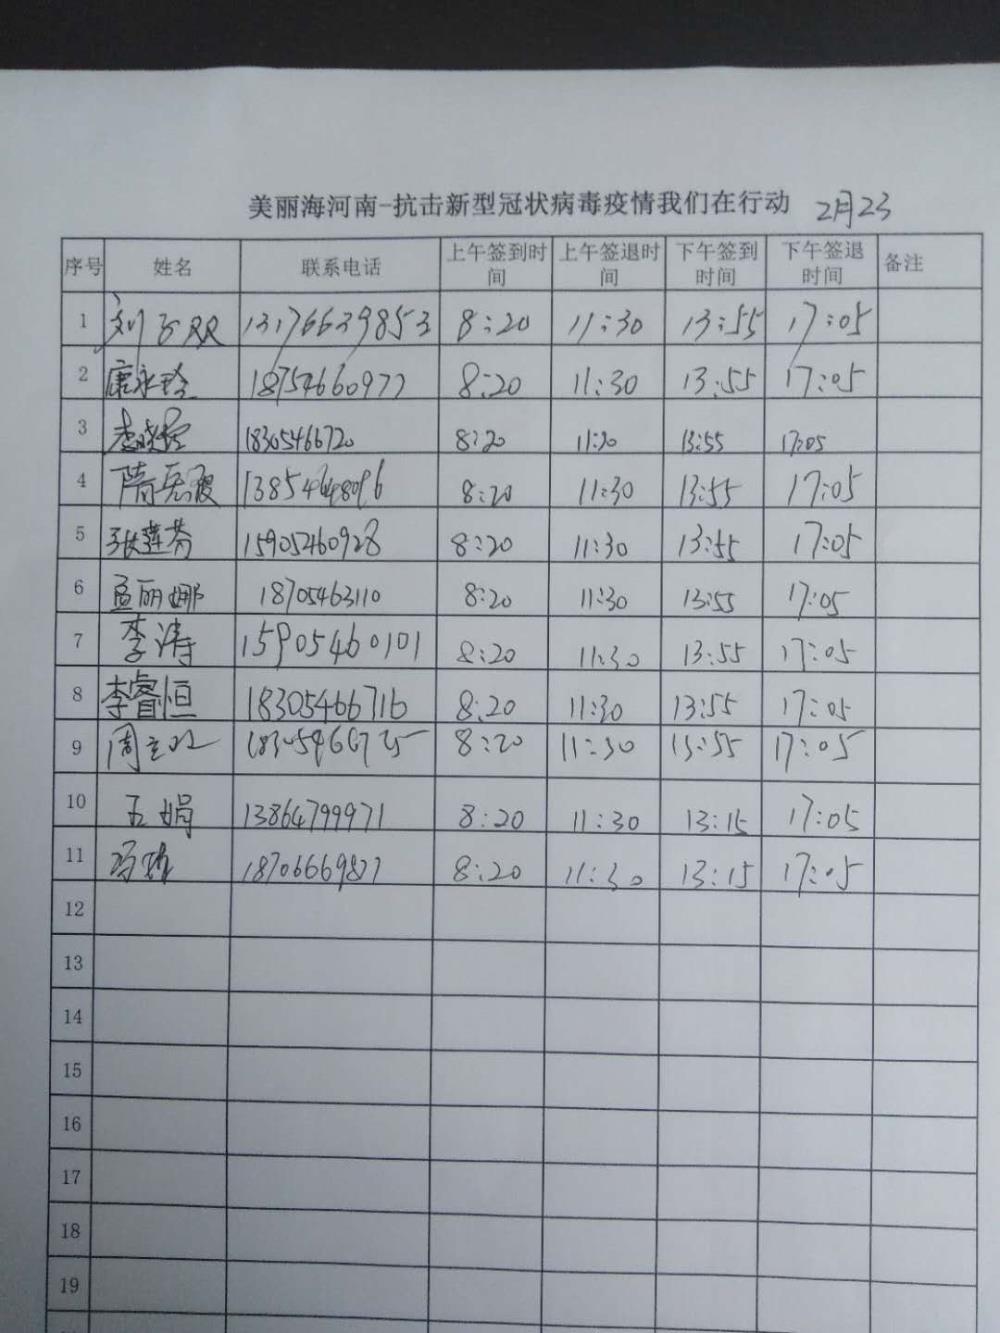 美丽海河南-抗击新型冠状病毒疫情我们在行动 2月23
序号 姓名 联系电话 上午签到时间 上午签退时间 下午签到时间 下午签退时间 备注
1 刘 双 13176639853 8:20 11:30 13:55 17:05
2 康永玲 18754660977 8:20 11:30 13:55 17:05
3 李晓 18305466720 8:20 11:30 13:55 17:05
4 隋 霞 8:20 11:30 13:55 17:05
5 张莲芬 15905460928 8:20 11:30 13:55 17:05
6 孟丽娜 18705463110 8:20 11:30 13:55 17:05
7 李涛 15905460101 8:20 11:30 13:55 17:05
8 李睿恒 18305466716 8:20 11:30 13:55 17:05
9 周立 18305466725 8:20 11:30 13:55 17:05
10 王娟 13864799971 8:20 11:30 13:15 17:05
11 冯 18706669877 8:20 11:30 13:15 17:05
12
13
14
15
16
17
18
19